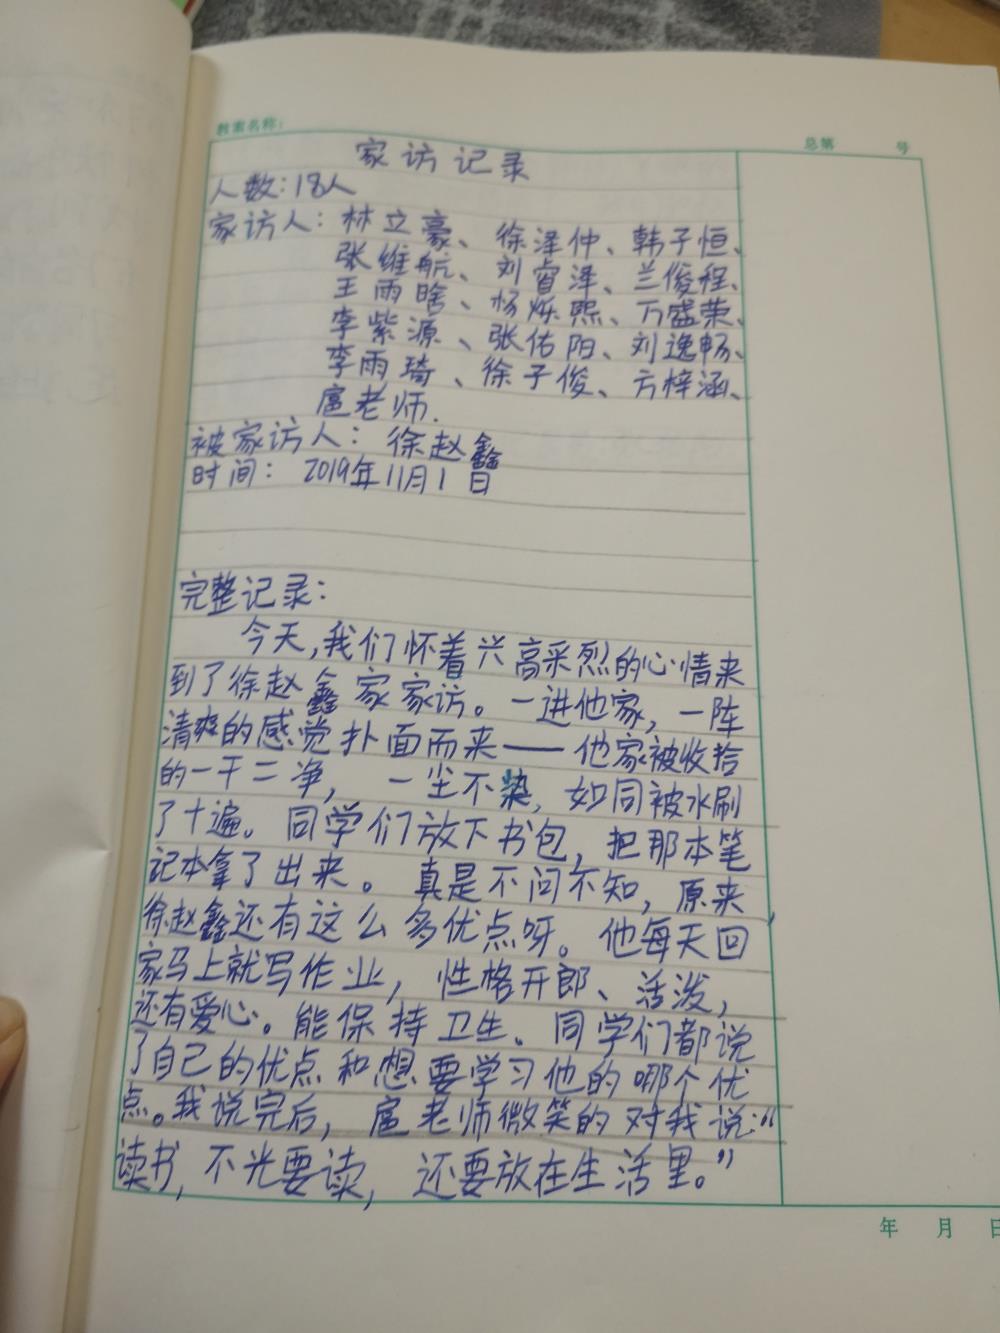 教案名称：
总第 号
家访记录
人数：18人
家访人：林立豪、徐泽仲、韩子恒、
张维航、刘睿泽、兰俊程、
王雨晗、杨烁熙、万盛荣、
李紫源、张佑阳、刘逸畅、
李雨琦、徐子俊、方梓涵、
扈老师.
被家访人：徐赵鑫
时间：2019年11月1日
完整记录：
今天,我们怀着兴高采烈的心情来
到了徐赵鑫家家访。一进他家，一阵
清爽的感觉扑面而来——他家被收拾
的一干二净，一尘不染,如同被水刷
了十遍。同学们放下书包，把那本笔
记本拿了出来。真是不问不知，原来，
徐赵鑫还有这么多优点呀。他每天回
家马上就写作业，性格开郎、活泼，
还有爱心。能保持卫生。同学们都说
了自己的优点和想要学习他的哪个优
点。我说完后，扈老师微笑的对我说:“
读书,不光要读，还要放在生活里。”
年 月 日